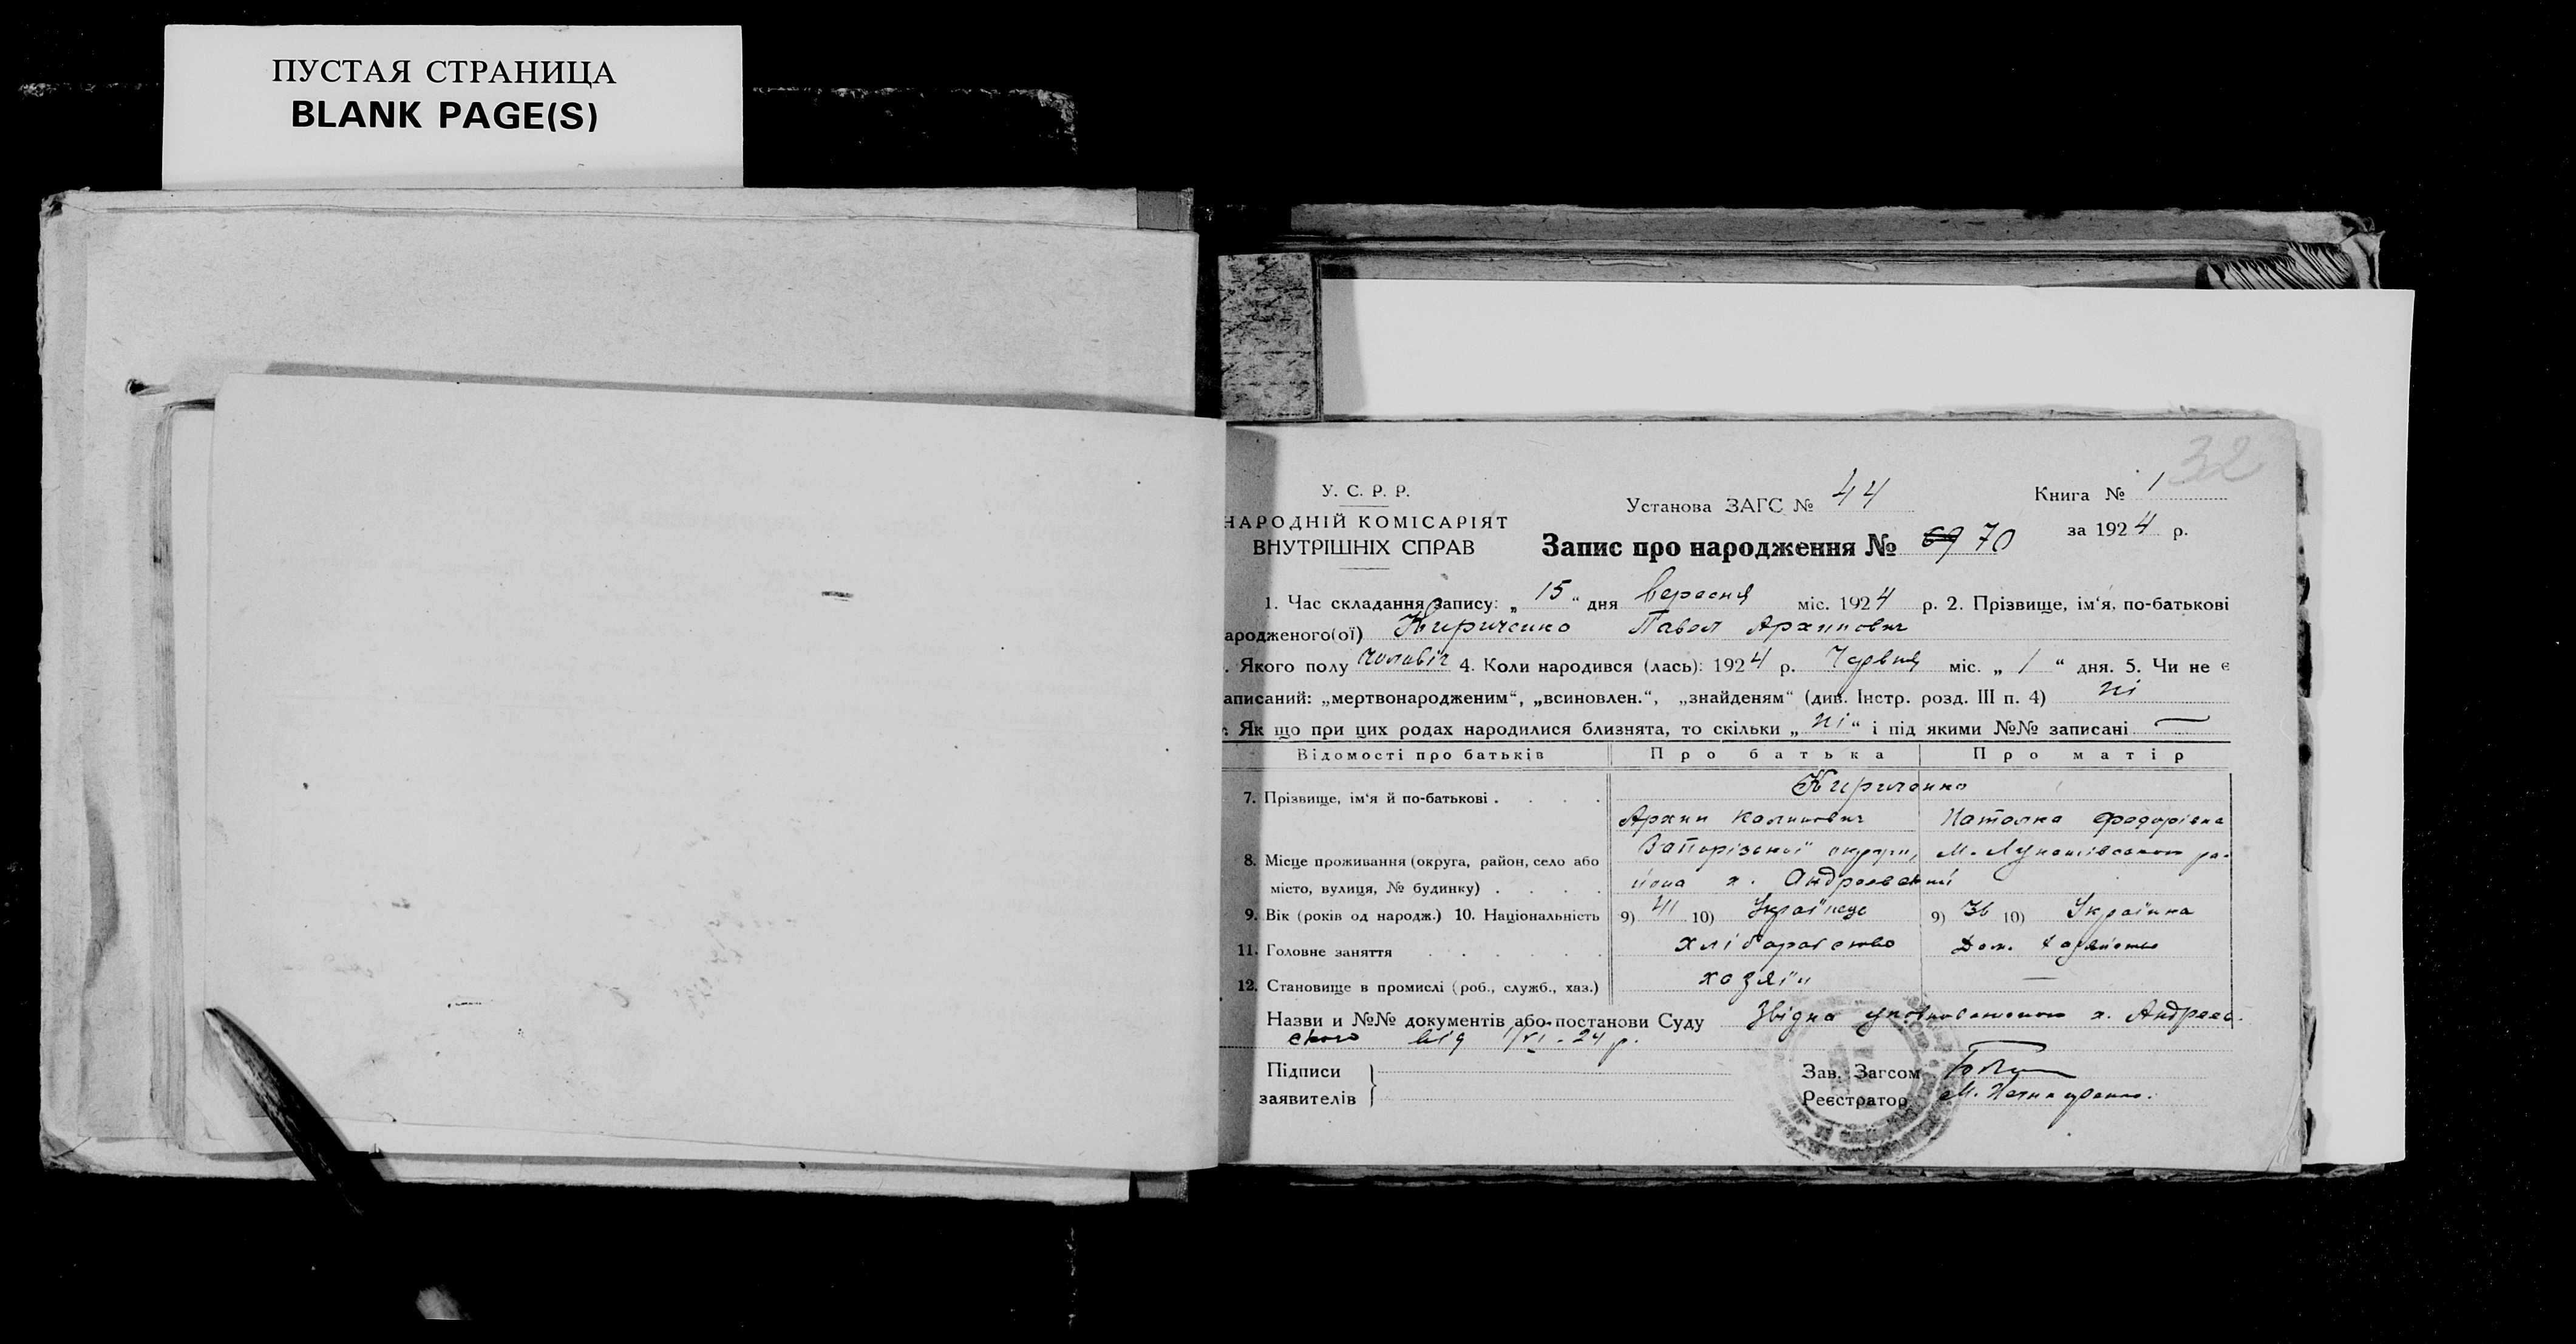 ПУСТАЯ СТРАНИЦА
BLANK PAGE(S)
32
У. С. Р. Р.
НАРОДНІЙ КОМІСАРІЯТ
ВНУТРІШНІХ СПРАВ
Установа ЗАГС № 44
Запис про народження № 69 70
Книга № 1
за 1924 р.
1. Час складання запису: „ 15 “ дня вересня міс. 1924 р. 2. Прізвище, ім'я, по-батькові
ародженого(ої) Кириченко Павел Архипович
. Якого полу чоловіч 4. Коли народився (лась): 1924 р. Червня міс. „ 1 “ дня. 5. Чи не є
аписаний: „мертвонародженим“, „всиновлен.“, „знайденям“ (див. Інстр. розд. III п. 4) ні
. Як що при цих родах народилися близнята, то скільки „ ні “ і під якими №№ записані —
Відомості про батьків Про батька Про матір
7. Прізвище, ім'я й по-батькові . . . . Кириченко
Архип Калинович Наталка Федорівна
8. Місце проживання (округа, район, село або Запорізької округи, М. Лукашівського ра-
місто, вулиця, № будинку) . . . . йона х. Андреевський
9. Вік (років од народж.) 10. Національність 9) 41 10) Українець 9) 36 10) Українка
11. Головне заняття . . . . . . хліборобство Дом. хазяйство
12. Становище в промислі (роб., служб., хаз.) хозяїн —
Назви и №№ документів або постанови Суду Звідка уповноваженого х. Андреев-
ского від 1/VI - 24 р.
Підписи
заявителів
Зав. Загсом
Реєстратор М.